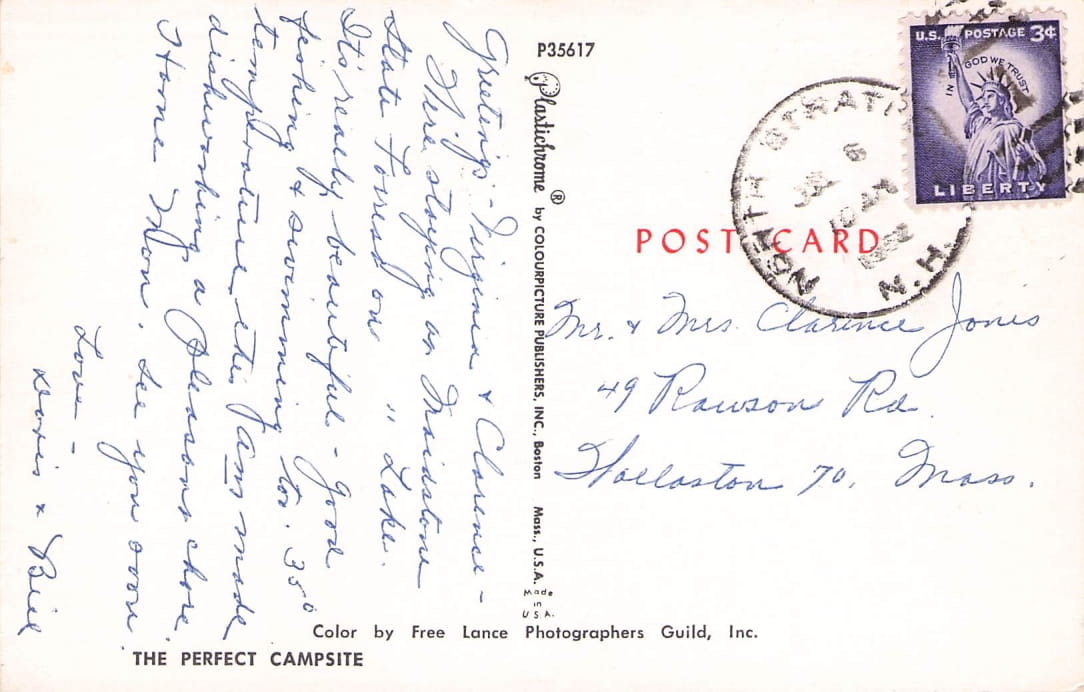 Greetings - Virginia & Clarence -
We're staying at Maidstone
State Forest on " Lake.
It's really beautiful - good
fishing & swimming too. 35°
temperature this A.M. made
dishwashing a pleasant chore.
Home Mon. See you soon.
Love -
Doris & Bill
P35617
Plastichrome ® by COLOURPICTURE PUBLISHERS, INC., Boston Mass., U.S.A.
Made
in
U.S.A.
Color by Free Lance Photographers Guild, Inc.
THE PERFECT CAMPSITE
U.S. POSTAGE 3¢
IN GOD WE TRUST
LIBERTY
NORTH STRAT
6
10 AM
N.H.
POST CARD
Mr. & Mrs. Clarence Jones
49 Rawson Rd.
Wollaston 70, Mass.